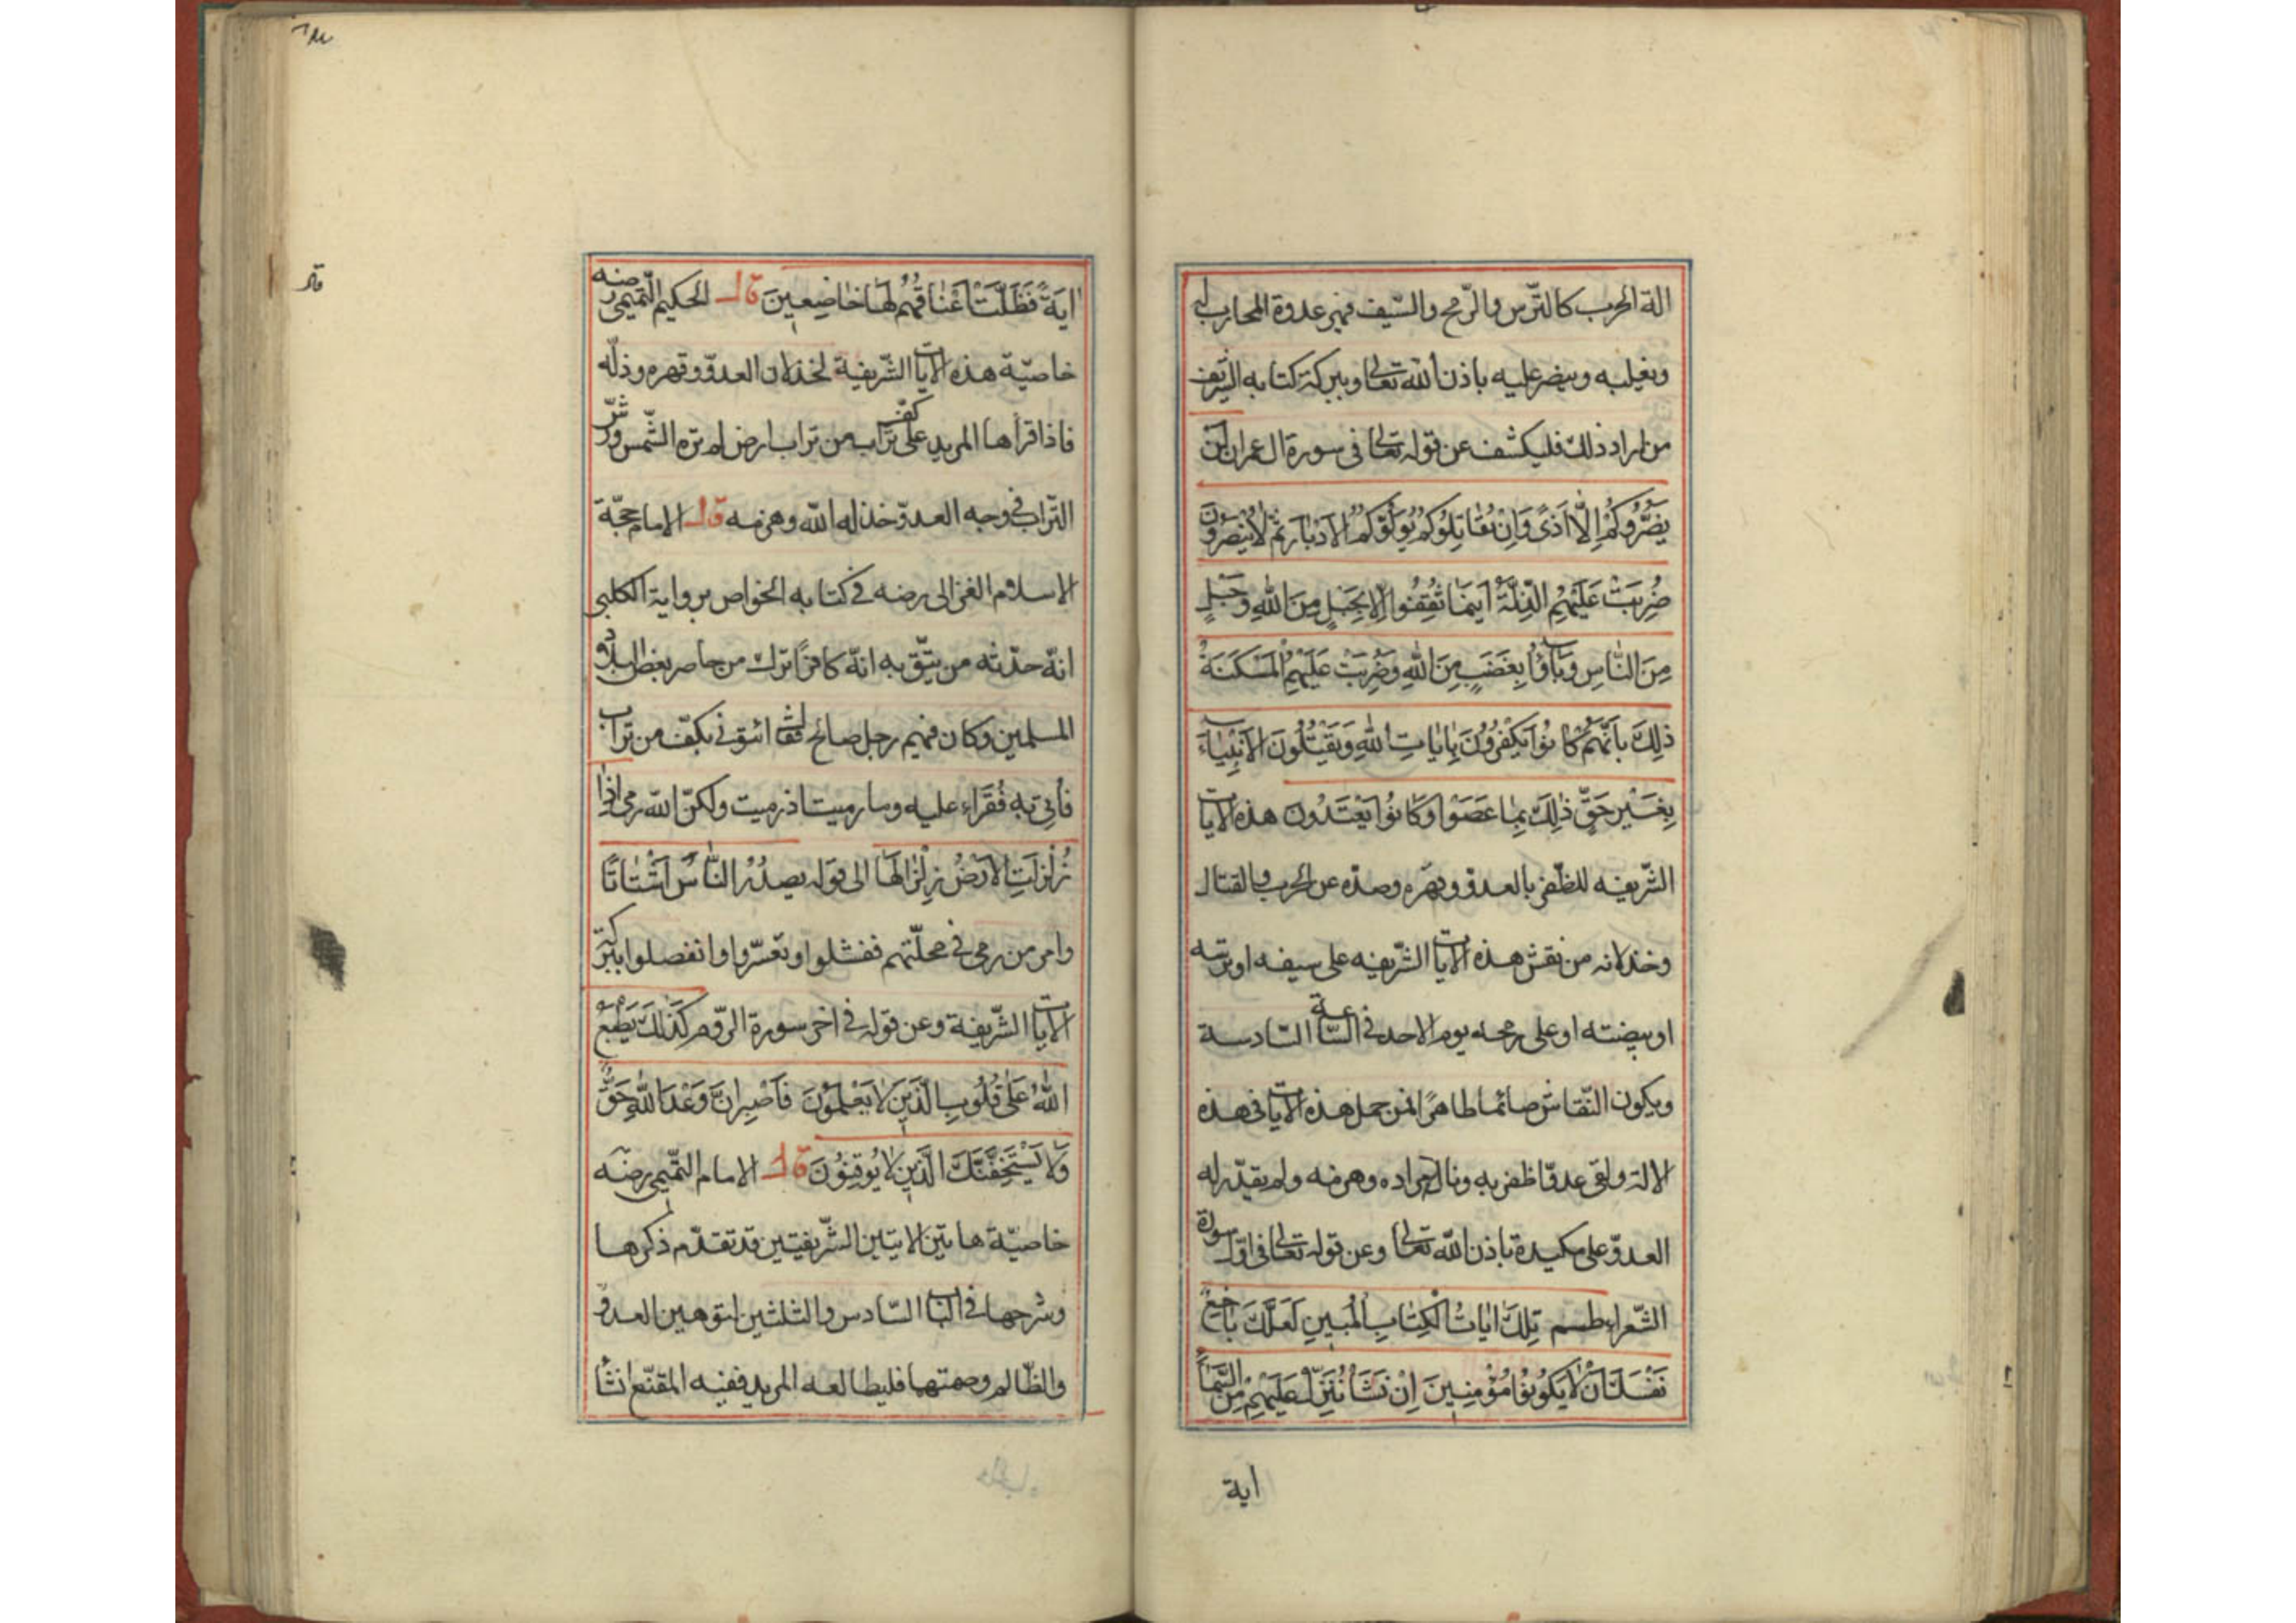 الة الحرب كالترس والرمح والسيف فهي عدوة المحارب له
ويغلبه وينصر عليه باذن الله تعالى وببركة كتابه الشريف
من اراد ذلك فليكشف عن قوله تعالى فى سورة ال عمران لن
يَضُرُّوكُمْ اِلَّا اَذًى وَاِنْ يُقَاتِلُوكُمْ يُوَلُّوكُمُ الْاَدْبَارَ ثُمَّ لَا يُنْصَرُونَ
ضُرِبَتْ عَلَيْهِمُ الذِّلَّةُ اَيْنَمَا ثُقِفُوا اِلَّا بِحَبْلٍ مِنَ اللهِ وَحَبْلٍ
مِنَ النَّاسِ وَبَاؤُا بِغَضَبٍ مِنَ اللهِ وَضُرِبَتْ عَلَيْهِمُ الْمَسْكَنَةُ
ذٰلِكَ بِاَنَّهُمْ كَانُوا يَكْفُرُونَ بِاٰيَاتِ اللهِ وَيَقْتُلُونَ الْاَنْبِيَاءَ
بِغَيْرِ حَقٍّ ذٰلِكَ بِمَا عَصَوْا وَكَانُوا يَعْتَدُونَ هذه الايات
الشّريفه للظّفر بالعدوّ وقهره وصدّه عن الحرب والقتال
وخذلانه من نقش هذه الايات الشّريفه على سيفه او ترسه
او بيضته او على رمحه يوم الاحد فى السّاعة السّادسة
ويكون النّقاش صائما طاهرًا فمن حمل هذه الايات فى هذه
الالة ولقى عدوّا ظفر به ونال مراده وهزمه ولم يقدّر له
العدوّ على مكيدة باذن الله تعالى وعن قوله تعالى فى اوّل سورة
الشّعراء طسم تِلْكَ اٰيَاتُ الْكِتَابِ الْمُبِينِ لَعَلَّكَ بَاخِعٌ
نَفْسَكَ اَنْ لَا يَكُونُوا مُؤْمِنِينَ اِنْ نَشَأْ نُنَزِّلْ عَلَيْهِمْ مِنَ السَّمَاءِ
اية
اٰيَةً فَظَلَّتْ اَعْنَاقُهُمْ لَهَا خَاضِعِينَ قال الحكيم التّميمى رضه
خاصيّة هذه الايات الشّريفة لخذلان العدوّ وقهره وذلّه
فاذا قرأها المريد على كفّ تراب من تراب ارض لم تره الشّمس ورشّ
التّراب فى وجه العدوّ خذله الله وهزمه قال الامام حجّة
الاسلام الغزالى رضه فى كتابه الخواص برواية الكلبى
انّه حدّثه من يثق به انّه كافرًا ترك من حاصر بعض البلاد
المسلمين وكان فيهم رجل صالح فقال ائتونى بكفّ من تراب
فأتى به فقراء عليه وما رميت اذ رميت ولكنّ الله رمى اذا
زُلْزِلَتِ الْاَرْضُ زِلْزَالَهَا الى قوله يصدر النَّاسُ اَشْتَاتًا
وامر من رمى فى محلّتهم ففشلوا وتعسّروا وانفصلوا ببركة
الايات الشّريفة وعن قوله فى اخر سورة الرّوم كَذٰلِكَ يَطْبَعُ
اللهُ عَلٰى قُلُوبِ الَّذِينَ لَا يَعْلَمُونَ فَاصْبِرْ اِنَّ وَعْدَ اللهِ حَقٌّ
وَلَا يَسْتَخِفَّنَّكَ الَّذِينَ لَا يُوقِنُونَ قال الامام التّميمى رضه
خاصيّة هاتين الايتين الشّريفتين قد تقدّم ذكرها
وشرحها فى الباب السّادس والثلثين لتوهين العدوّ
والظّالم وصمتهما فليطالعه المريد ففيه المقنع انشا